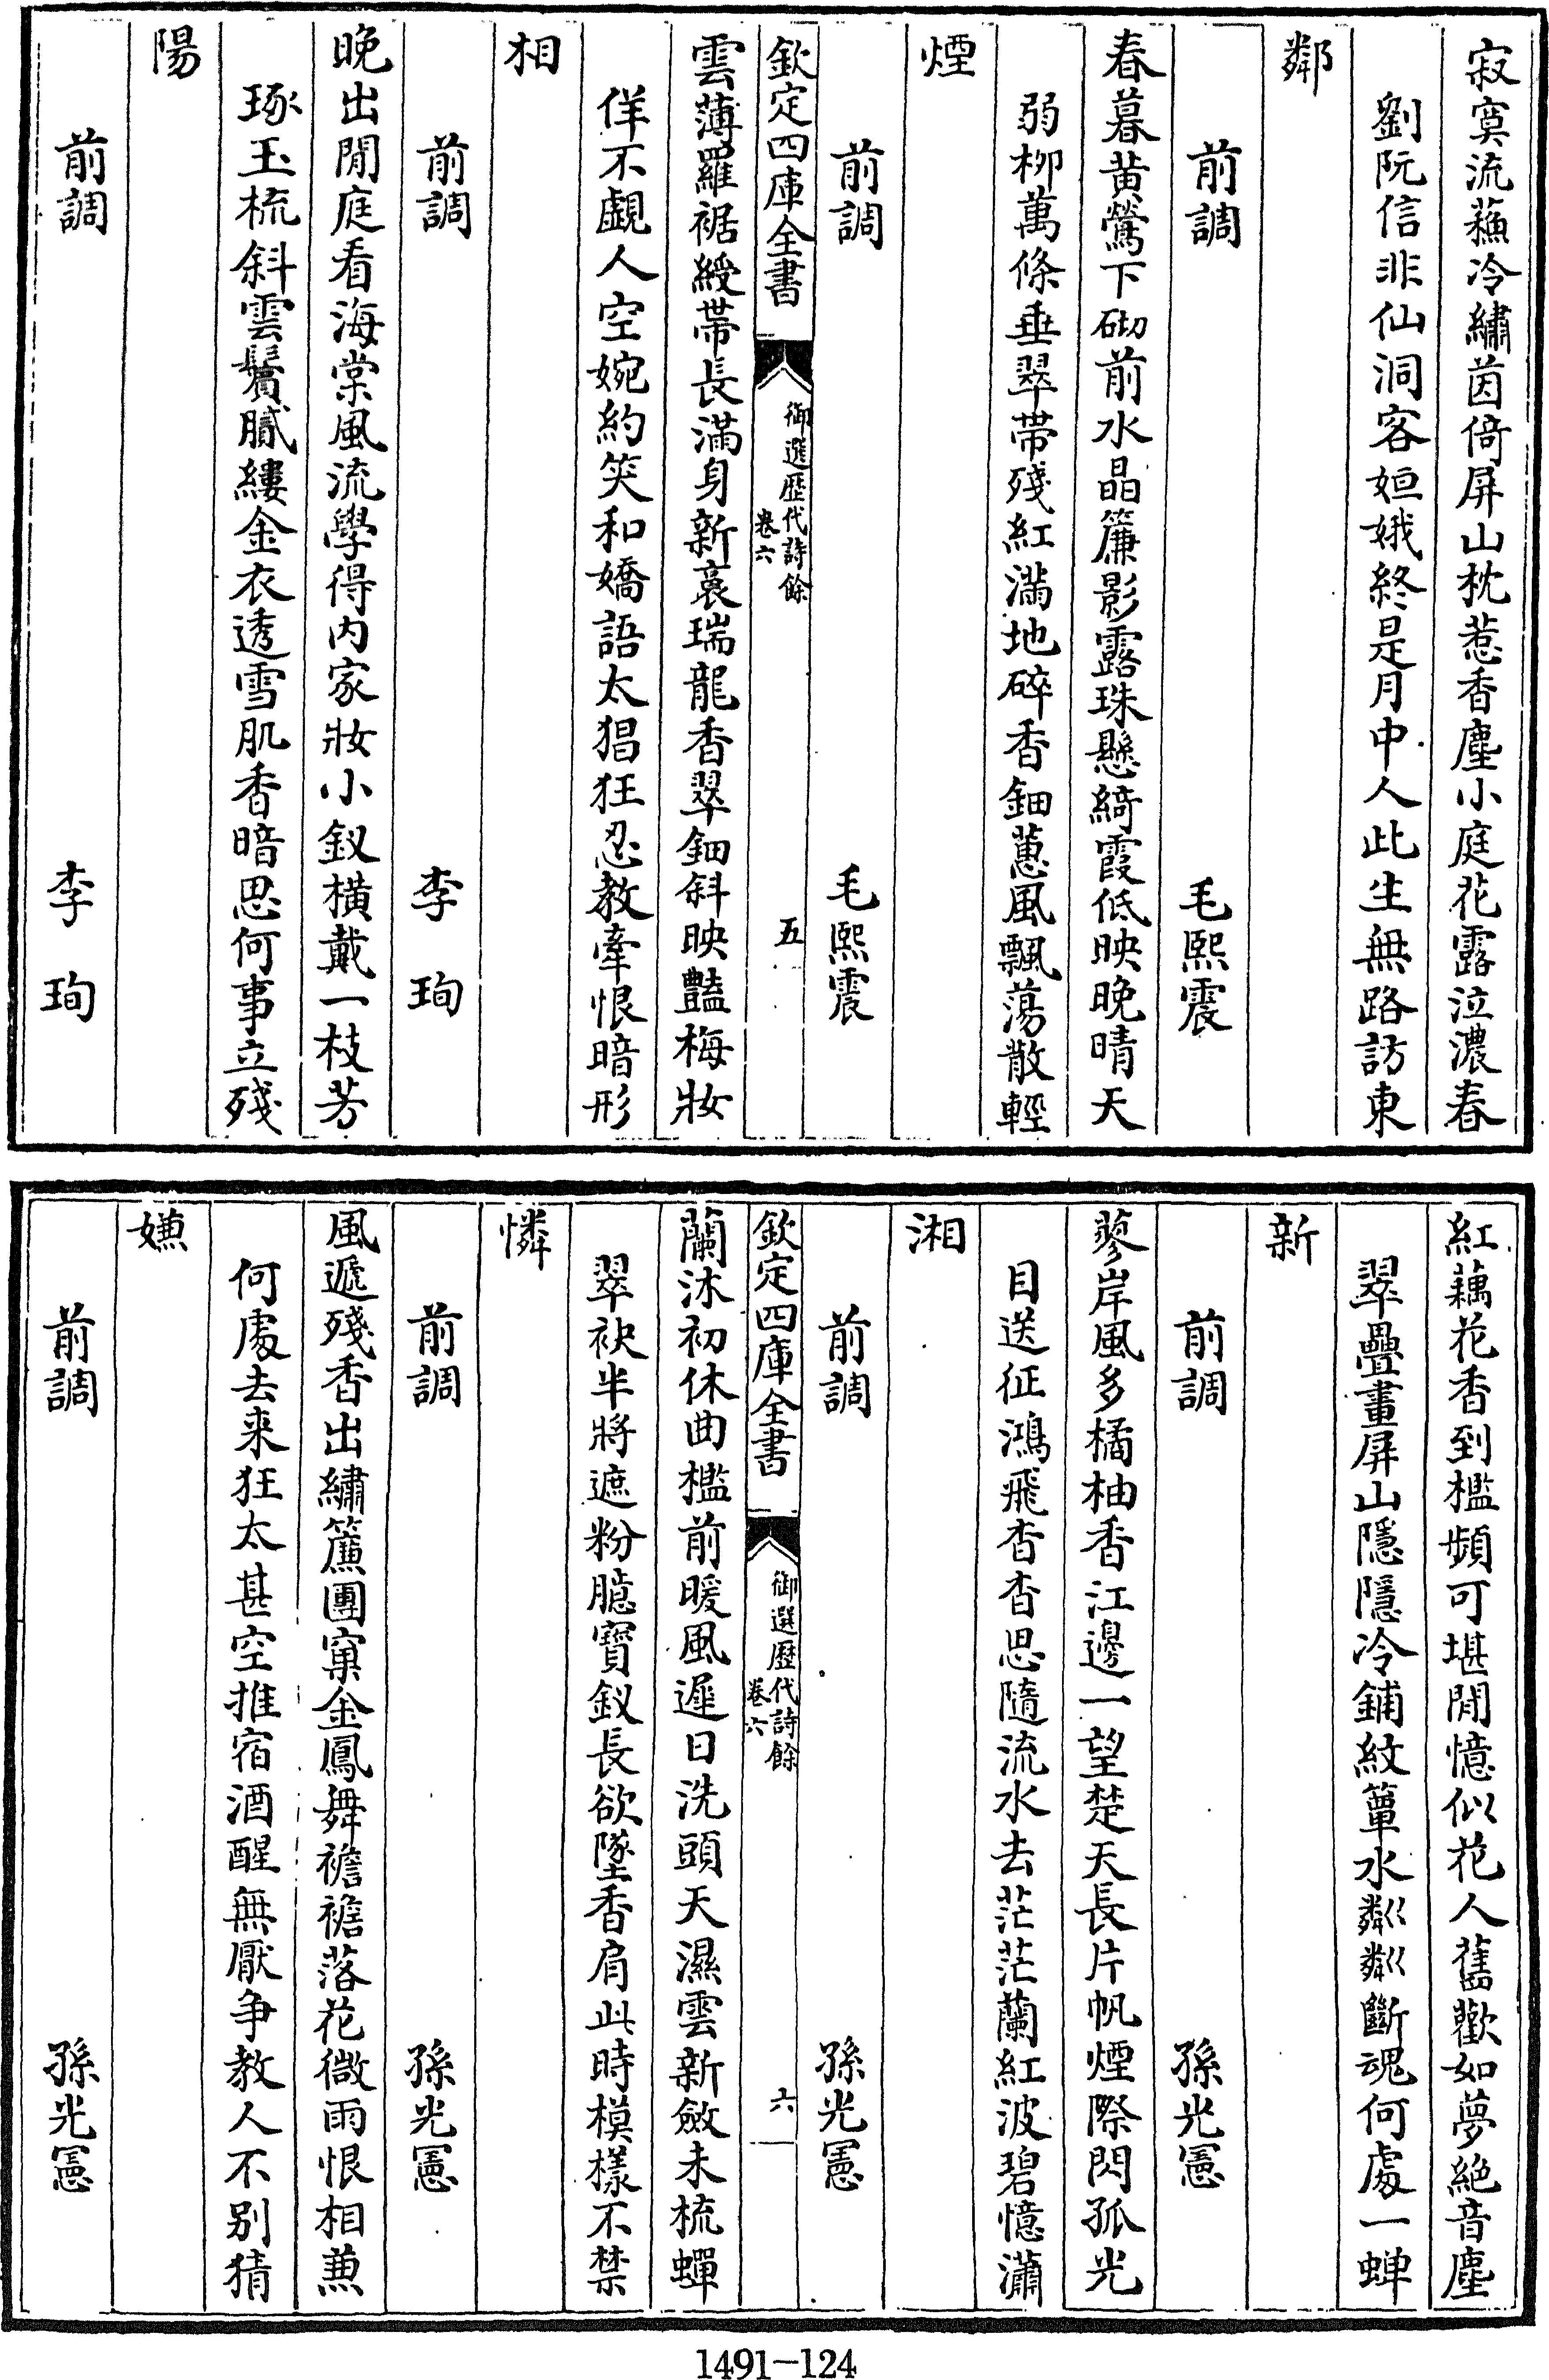 寂寞流蘇冷繡茵倚屏山枕惹香塵小庭花露泣濃春
劉阮信非仙洞客姮娥終是月中人此生無路訪東
鄰
前調　毛熙震
春暮黄鶯下砌前水晶簾影露珠懸綺霞低映晚晴天
弱柳萬條垂翠帶殘紅滿地碎香鈿蕙風飄蕩散輕
煙
前調　毛熙震
欽定四庫全書　御選歷代詩餘　卷六　五
雲薄羅裾綬帶長滿身新裛瑞龍香翠鈿斜映豔梅妝
佯不覷人空婉約笑和嬌語太猖狂忍教牽恨暗形
相
前調　李珣
晚出閒庭看海棠風流學得内家妝小釵橫戴一枝芳
琢玉梳斜雲鬢膩縷金衣透雪肌香暗思何事立殘
陽
前調　李珣
紅藕花香到檻頻可堪閒憶似花人舊歡如夢絶音塵
翠疊畫屏山隱隱冷鋪紋簟水粼粼斷魂何處一蟬
新
前調　孫光憲
蓼岸風多橘柚香江邊一望楚天長片帆煙際閃孤光
目送征鴻飛杳杳思隨流水去茫茫蘭紅波碧憶瀟
湘
前調　孫光憲
欽定四庫全書　御選歷代詩餘　卷六　六
蘭沐初休曲檻前暖風遲日洗頭天濕雲新斂未梳蟬
翠袂半將遮粉臆寶釵長欲墜香肩此時模樣不禁
憐
前調　孫光憲
風遞殘香出繡簾團窠金鳳舞襜襜落花微雨恨相兼
何處去来狂太甚空推宿酒醒無厭争教人不别猜
嫌
前調　孫光憲
1491-124